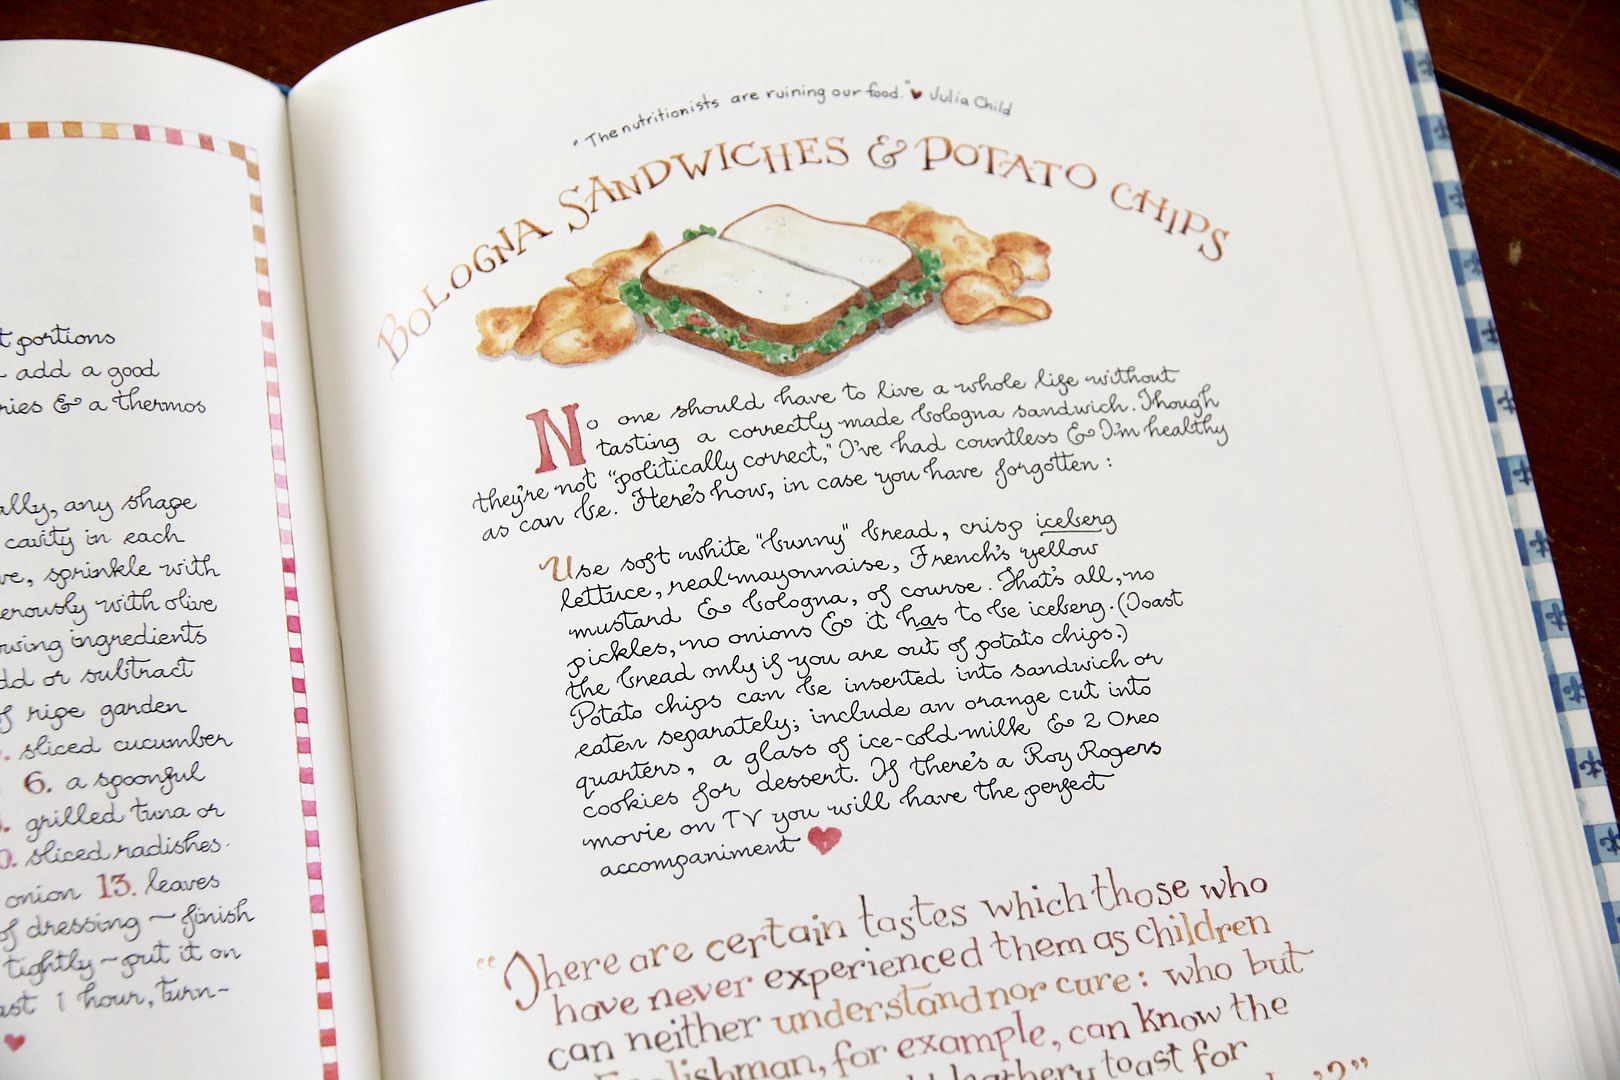 t portions
add a good
ries & a thermos
ally, any shape
cavity in each
ve, sprinkle with
erously with olive
owing ingredients
dd or subtract
of ripe garden
sliced cucumber
6. a spoonful
grilled tuna or
0. sliced radishes.
onion 13. leaves
of dressing — finish
tightly — put it on
ast 1 hour, turn-
"The nutritionists are ruining our food." ♥ Julia Child
BOLOGNA SANDWICHES & POTATO CHIPS
No one should have to live a whole life without
tasting a correctly made bologna sandwich. Though
they're not "politically correct," I've had countless & I'm healthy
as can be. Here's how, in case you have forgotten:
Use soft white "bunny" bread, crisp iceberg
lettuce, real mayonnaise, French's yellow
mustard & bologna, of course. That's all, no
pickles, no onions & it has to be iceberg. (Toast
the bread only if you are out of potato chips.)
Potato chips can be inserted into sandwich or
eaten separately; include an orange cut into
quarters, a glass of ice-cold milk & 2 Oreo
cookies for dessert. If there's a Roy Rogers
movie on TV you will have the perfect
accompaniment ♥
"There are certain tastes which those who
have never experienced them as children
can neither understand nor cure: who but
Englishman, for example, can know the
leathery toast for
?"